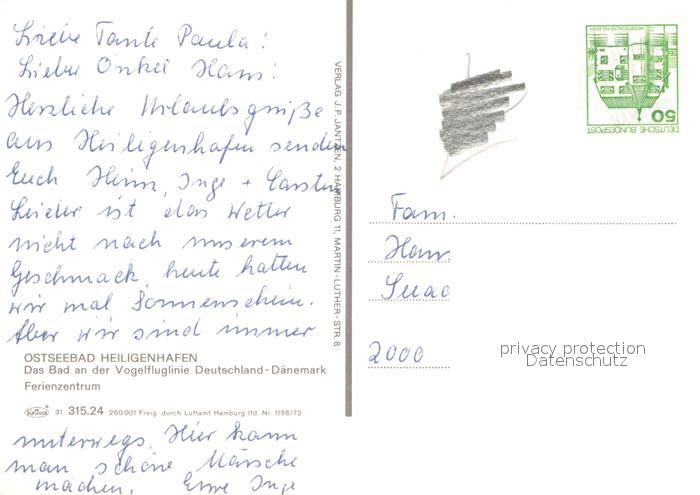 Liebe Tante Paula!
Lieber Onkel Hans!
Herzliche Urlaubsgrüße
aus Heiligenhafen senden
Euch Heim, Inge + Carsten
Leider ist das Wetter
nicht nach unserem
Geschmack, heute hatten
wir mal Sonnenschein.
Aber wir sind immer
OSTSEEBAD HEILIGENHAFEN
Das Bad an der Vogelfluglinie Deutschland-Dänemark
Ferienzentrum
Krüger 31. 315.24 260001 Freig. durch Luftamt Hamburg lfd. Nr. 1138/72
unterwegs. Hier kann
man schöne Märsche
machen. Eure Inge
VERLAG J.P. JANTZEN, 2 HAMBURG 11, MARTIN-LUTHER-STR. 8
50
DEUTSCHE BUNDESPOST
Fam.
Hans
2000
privacy protection
Datenschutz